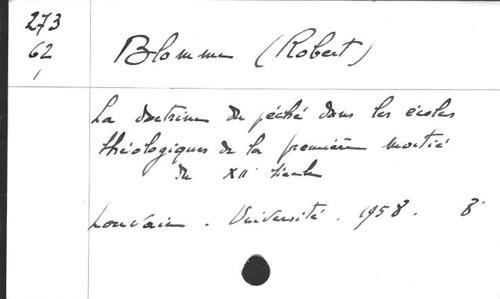 273
62
1
Blomme (Robert)
La doctrine du péché dans les écoles
théologiques de la première moitié
du XIIe siècle
Louvain. Université. 1958. 8°